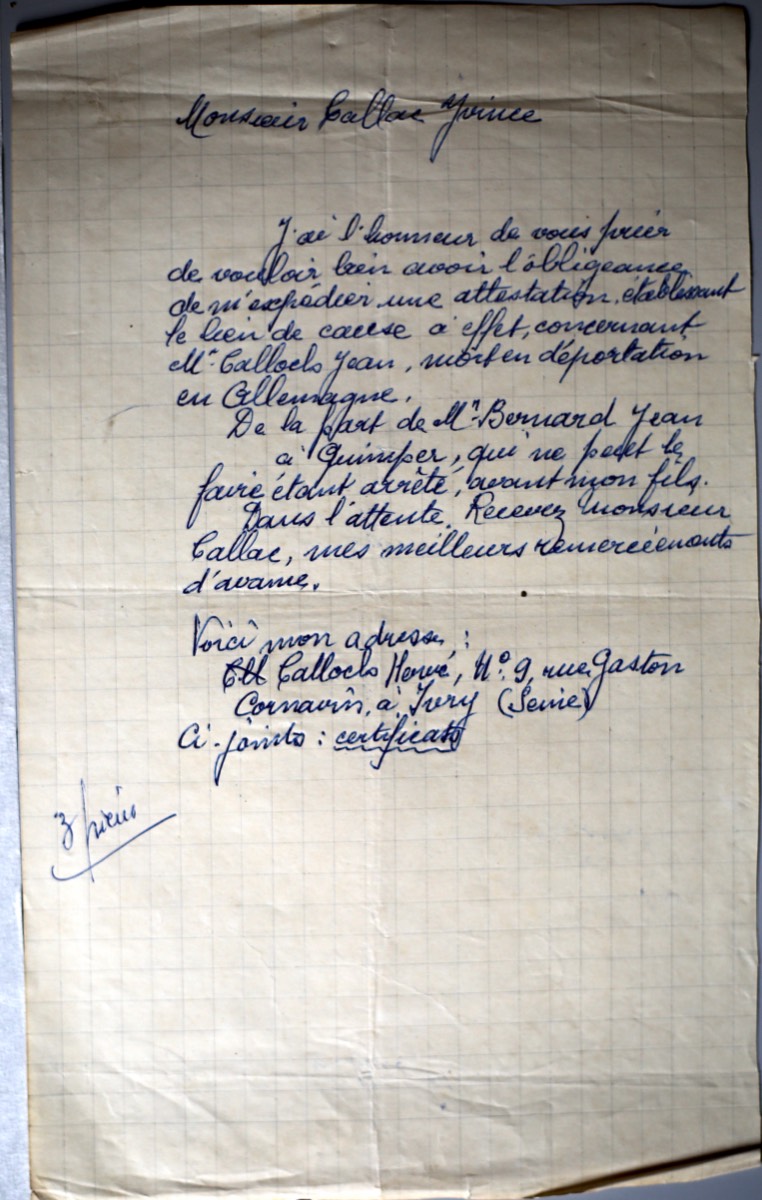 Monsieur Callac Yvinec
J'ai l'honneur de vous prier
de vouloir bien avoir l'obligeance
de m'expédier une attestation, établissant
le lien de cause à effet, concernant
Mr Callochs Jean, mort en déportation
en Allemagne.
De la part de Mr Bernard Jean
à Quimper, qui ne peut le
faire étant arrêté, avant mon fils.
Dans l'attente. Recevez Monsieur
Callac, mes meilleurs remerciements
d'avance.
Voici mon adresse :
Callochs Hervé, N° 9, rue Gaston
Cornavin, à Ivry (Seine)
Ci-joints : certificats
3 pièces